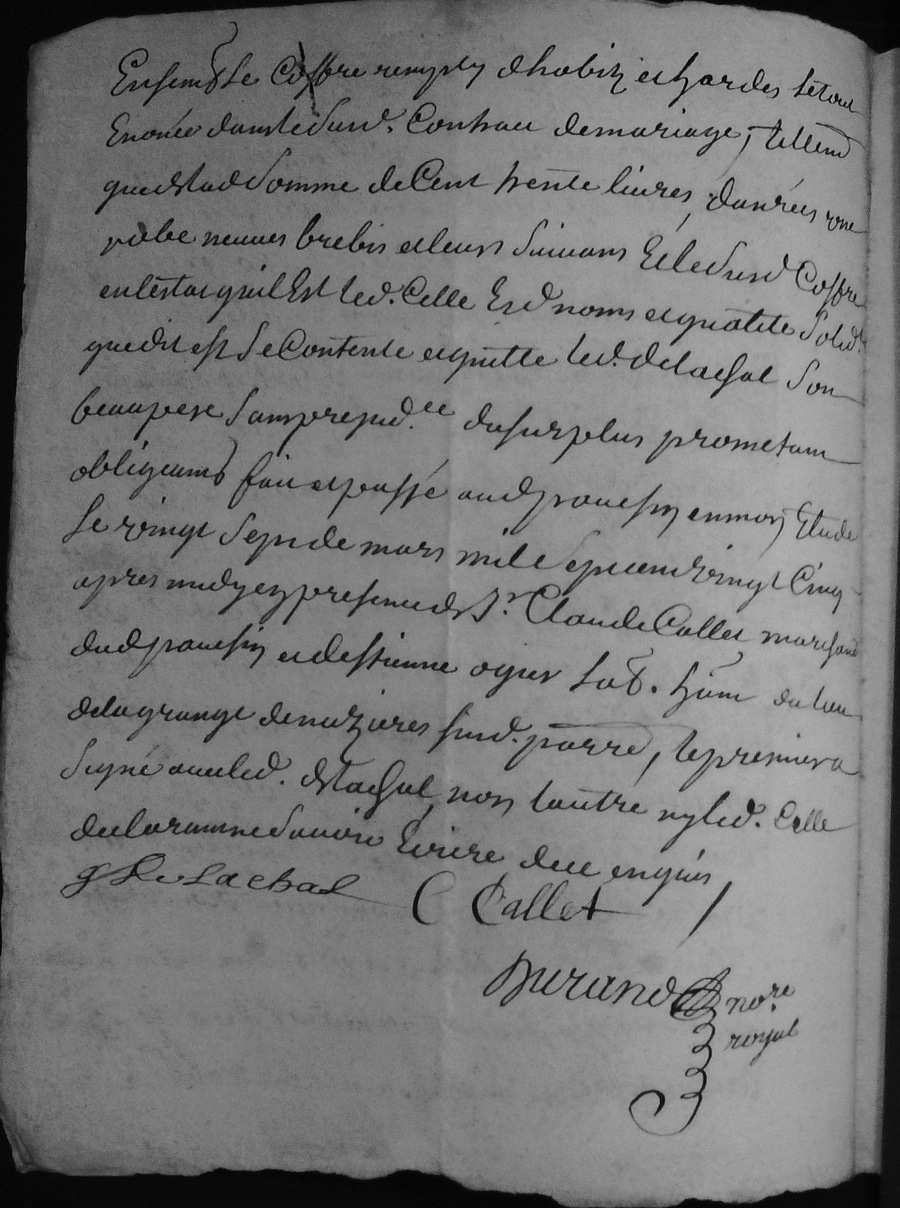 Ensemble Coffre remply dhabitz et hardes le tout
Enoncé dans le Susd. Contract de mariage, tellem
que de lad Somme de Cent trente livres, danrées une
robe neuves brebis et leurs Suivans Et le Susd Coffre
en lestat quil Est led. Celle Esd noms et qualité Solid.
que dit est Se Contente et quitte led. delachal Son
beaupere Sans prejud.ce du surplus prometant
obligeant fait et passé aud en mon Etude
le vingt Sept de mars mil Sept cent vingt Cinq
apres midy en presence de Sr. Claude Callet marchand
dud et destienne ogier lab. hum du lieu
de la grange de Susd. parre, le premier a
Signé avec led. delachal, non lautre ny led. Celle
declarant ne Savoir Ecrire de ce enquis
De Lachal C Callet
Durand nore
royal